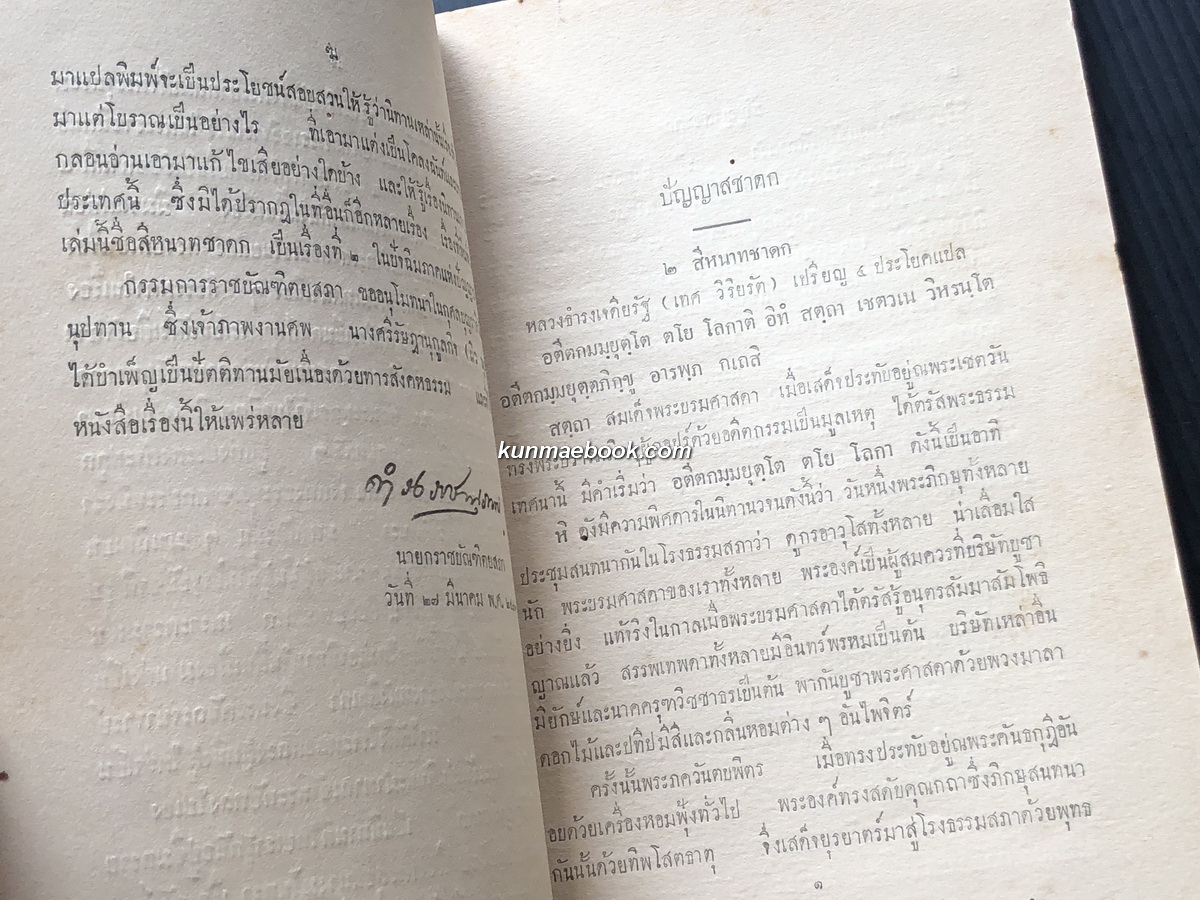 ฆ
มาแปลพิมพ์จะเป็นประโยชน์สอบสวนให้รู้ว่านิทานเหล่านั้น
มาแต่โบราณเป็นอย่างไร ที่เอามาแต่งเป็นโคลงฉันท์
กลอนอ่านเอามาแก้ไขเสียอย่างใดบ้าง และให้รู้เรื่องนิทาน
ประเทศนี้ ซึ่งมิได้ปรากฏในที่อื่นก็อีกหลายเรื่อง
เล่มนี้ชื่อสีหนาทชาดก เป็นเรื่องที่ ๒ ในปัจฉิมภาคแห่ง
กรรมการราชบัณฑิตยสภา ขออนุโมทนาในกุศล
นุปทาน ซึ่งเจ้าภาพงานศพ นางศรีรัษฎานุกูลกิจ
ได้บำเพ็ญเป็นปัตติทานมัยเนื่องด้วยทารสังคหธรรม
หนังสือเรื่องนี้ให้แพร่หลาย
ดำรงราชานุภาพ
นายกราชบัณฑิตยสภา
วันที่ ๒๗ มีนาคม พ.ศ.
ปัญญาสชาดก
๒ สีหนาทชาดก
หลวงธำรงเจดิยรัฐ (เทศ วิริยรัต) เปรียญ ๔ ประโยคแปล
อตีตกมฺมยุตฺโต ตโย โลกาติ อิทํ สตฺถา เชตวเน วิหรนฺโต
อตีตกมฺมยุตฺตภิกฺขู อารพฺภ กเถสิ
สตฺถา สมเด็จพระบรมศาสดา เมื่อเสด็จประทับอยู่ณพระเชตวัน
ทรงพระปรารภ ด้วยอดีตกรรมเป็นมูลเหตุ ได้ตรัสพระธรรม
kunmaebook.com
เทศนานี้ มีคำเริ่มว่า อตีตกมฺมยุตฺโต ตโย โลกา ดังนี้เป็นอาทิ
หิ จังมีความพิศดารในนิทานวจนดังนี้ว่า วันหนึ่งพระภิกษุทั้งหลาย
ประชุมสนทนากันในโรงธรรมสภาว่า ดูกรอาวุโสทั้งหลาย น่าเลื่อมใส
นัก พระบรมศาสดาของเราทั้งหลาย พระองค์เป็นผู้สมควรที่บริษัทบูชา
อย่างยิ่ง แท้จริงในกาลเมื่อพระบรมศาสดาได้ตรัสรู้อนุตรสัมมาสัมโพธิ
ญาณแล้ว สรรพเทพดาทั้งหลายมีอินทร์พรหมเป็นต้น บริษัทเหล่าอื่น
มียักษ์และนาคครุฑวิชชาธรเป็นต้น พากันบูชาพระศาสดาด้วยพวงมาลา
ดอกไม้และปทีปมีสีและกลิ่นหอมต่าง ๆ อันไพจิตร์
ครั้งนั้นพระภควันตบพิตร เมื่อทรงประทับอยู่ณพระคันธกุฎีอัน
อบด้วยเครื่องหอมฟุ้งทั่วไป พระองค์ทรงสดับคุณกถาซึ่งภิกษุสนทนา
กันนั้นด้วยทิพโสตธาตุ จึ่งเสด็จยุรยาตร์มาสู่โรงธรรมสภาด้วยพุทธ
๑